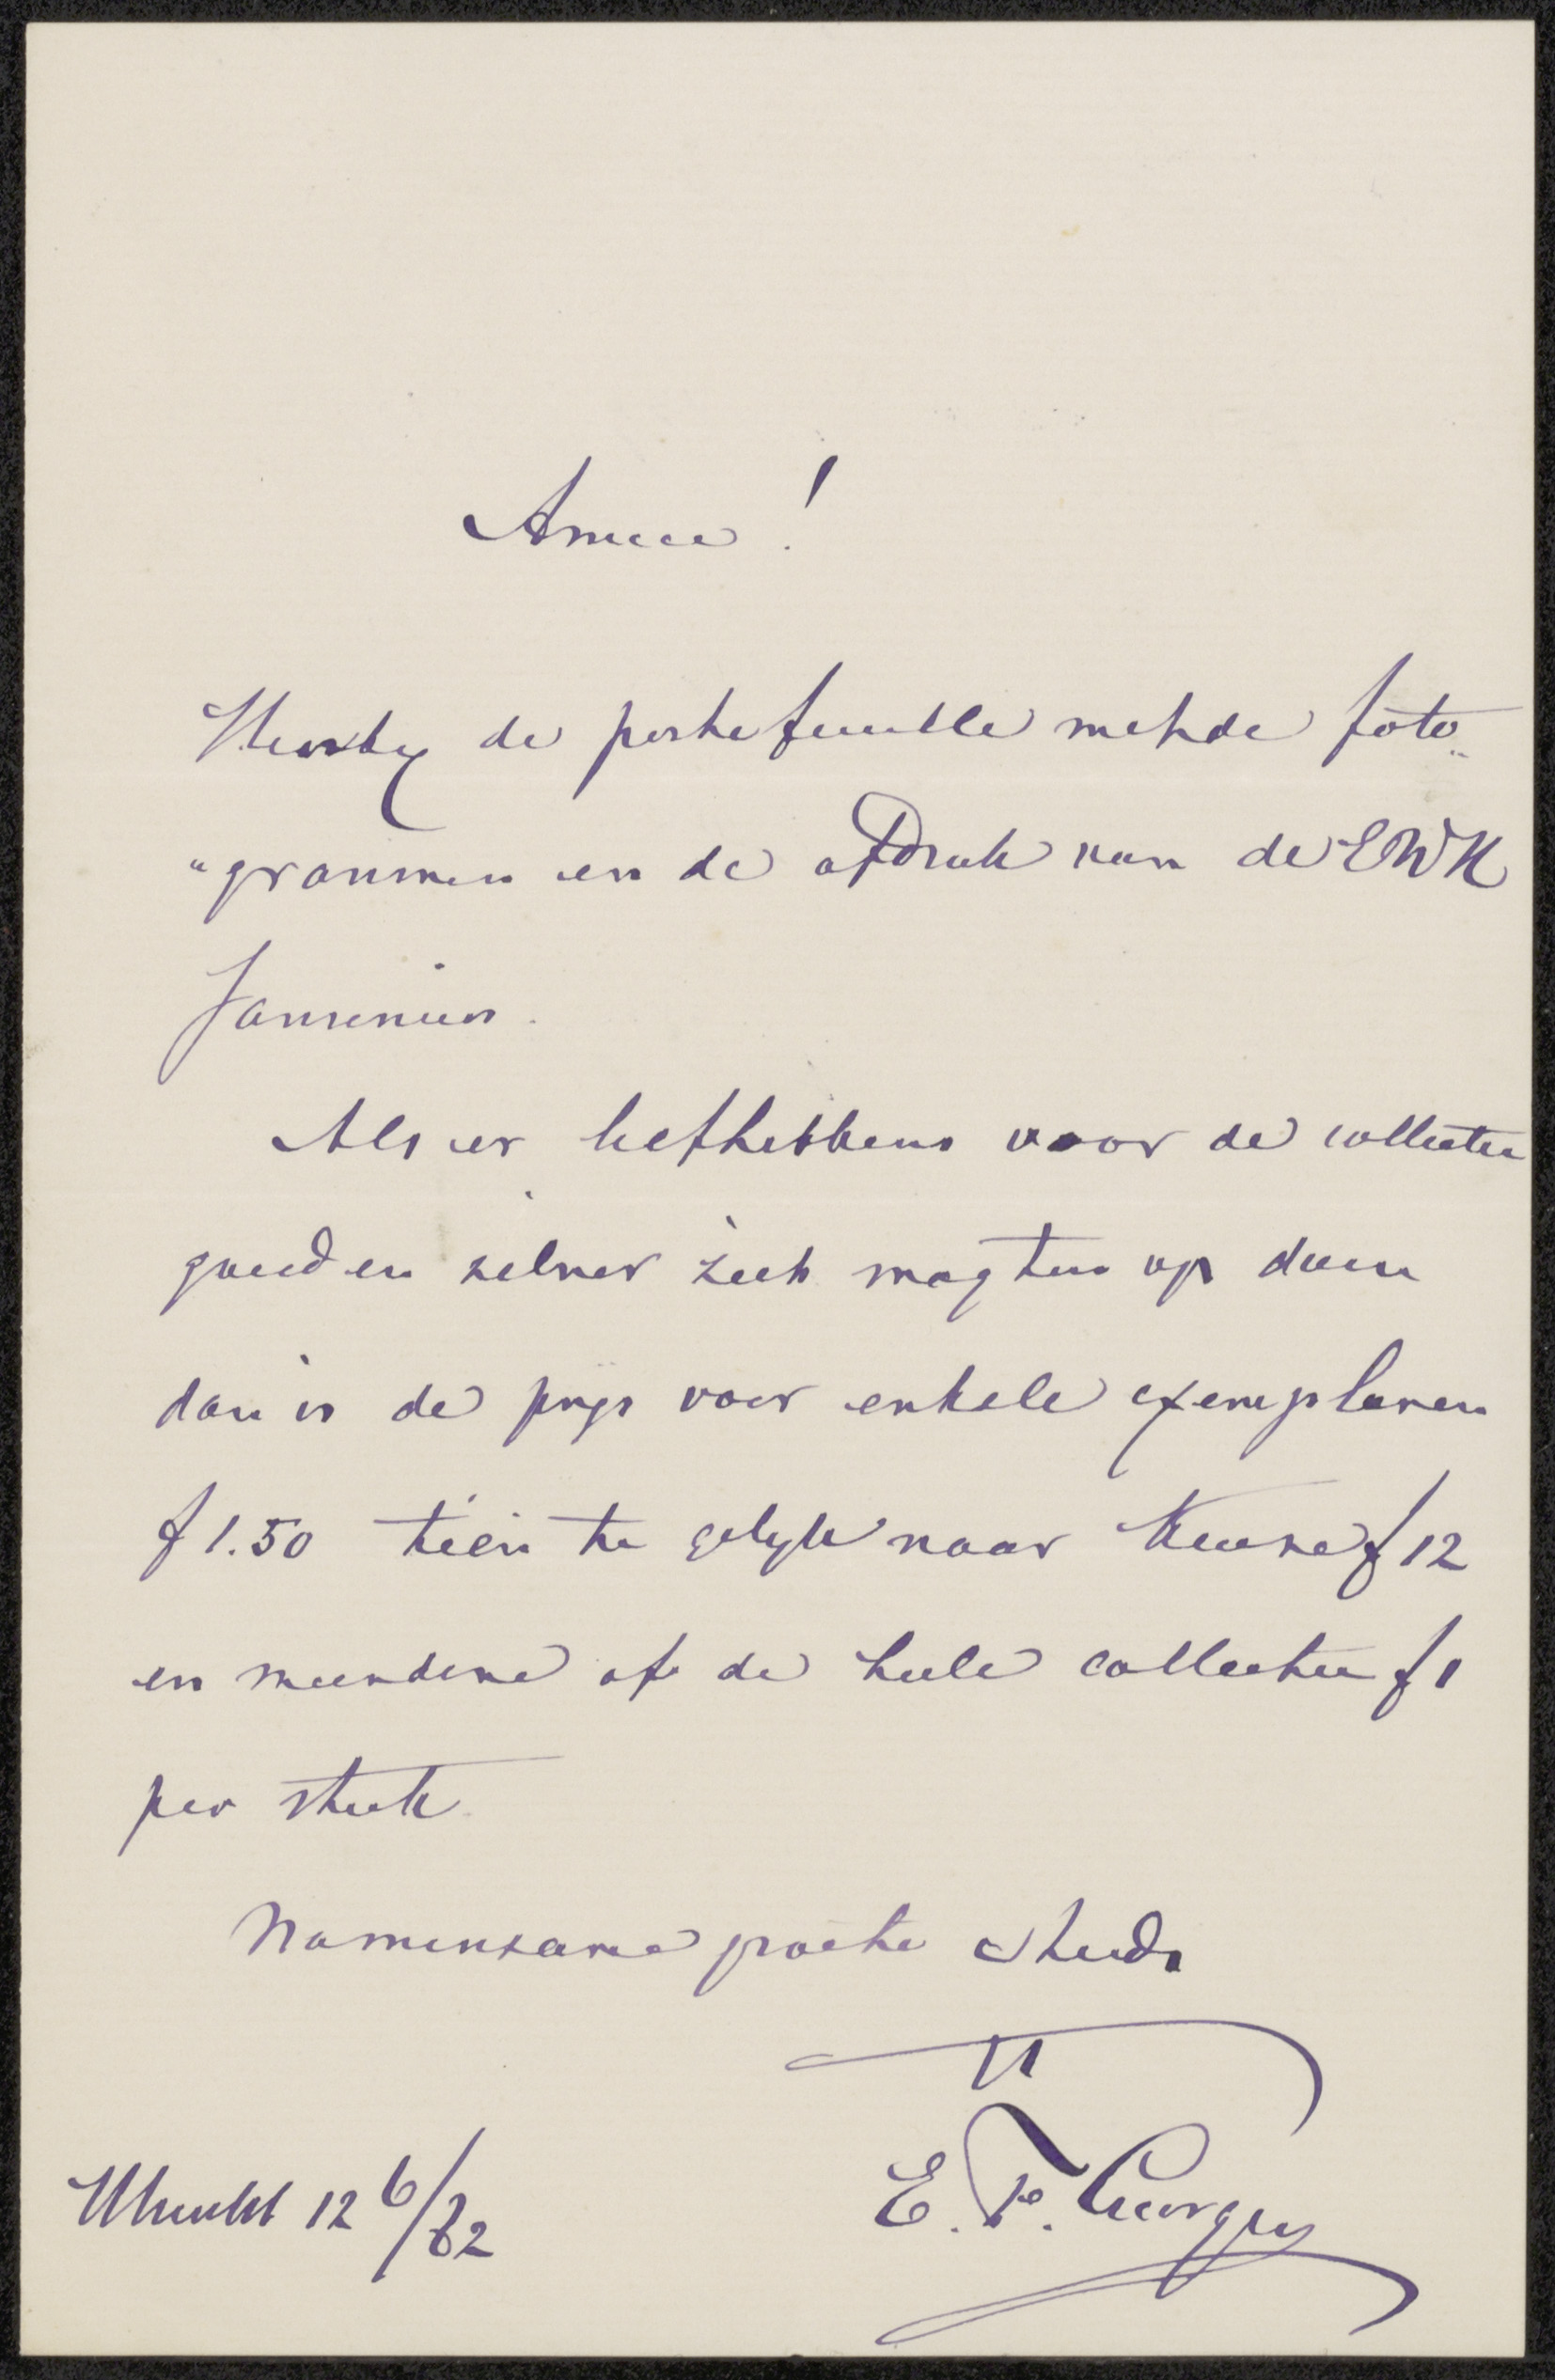 Amice!
Hierby de portefeuille met de foto„
„grammen en de afdruk van de EWK
Jansenius.
Als er liefhebbers voor de collectie
goud en zilver zich mogten op doen
dan is de prijs voor enkele exemplaren
f 1.50 tien te gelyk naar keuze f 12
en meerdere of de heele collectie f 1
per stuk
Na minzame groete steeds
tt
E. F. Georges
Utrecht 12 6/82